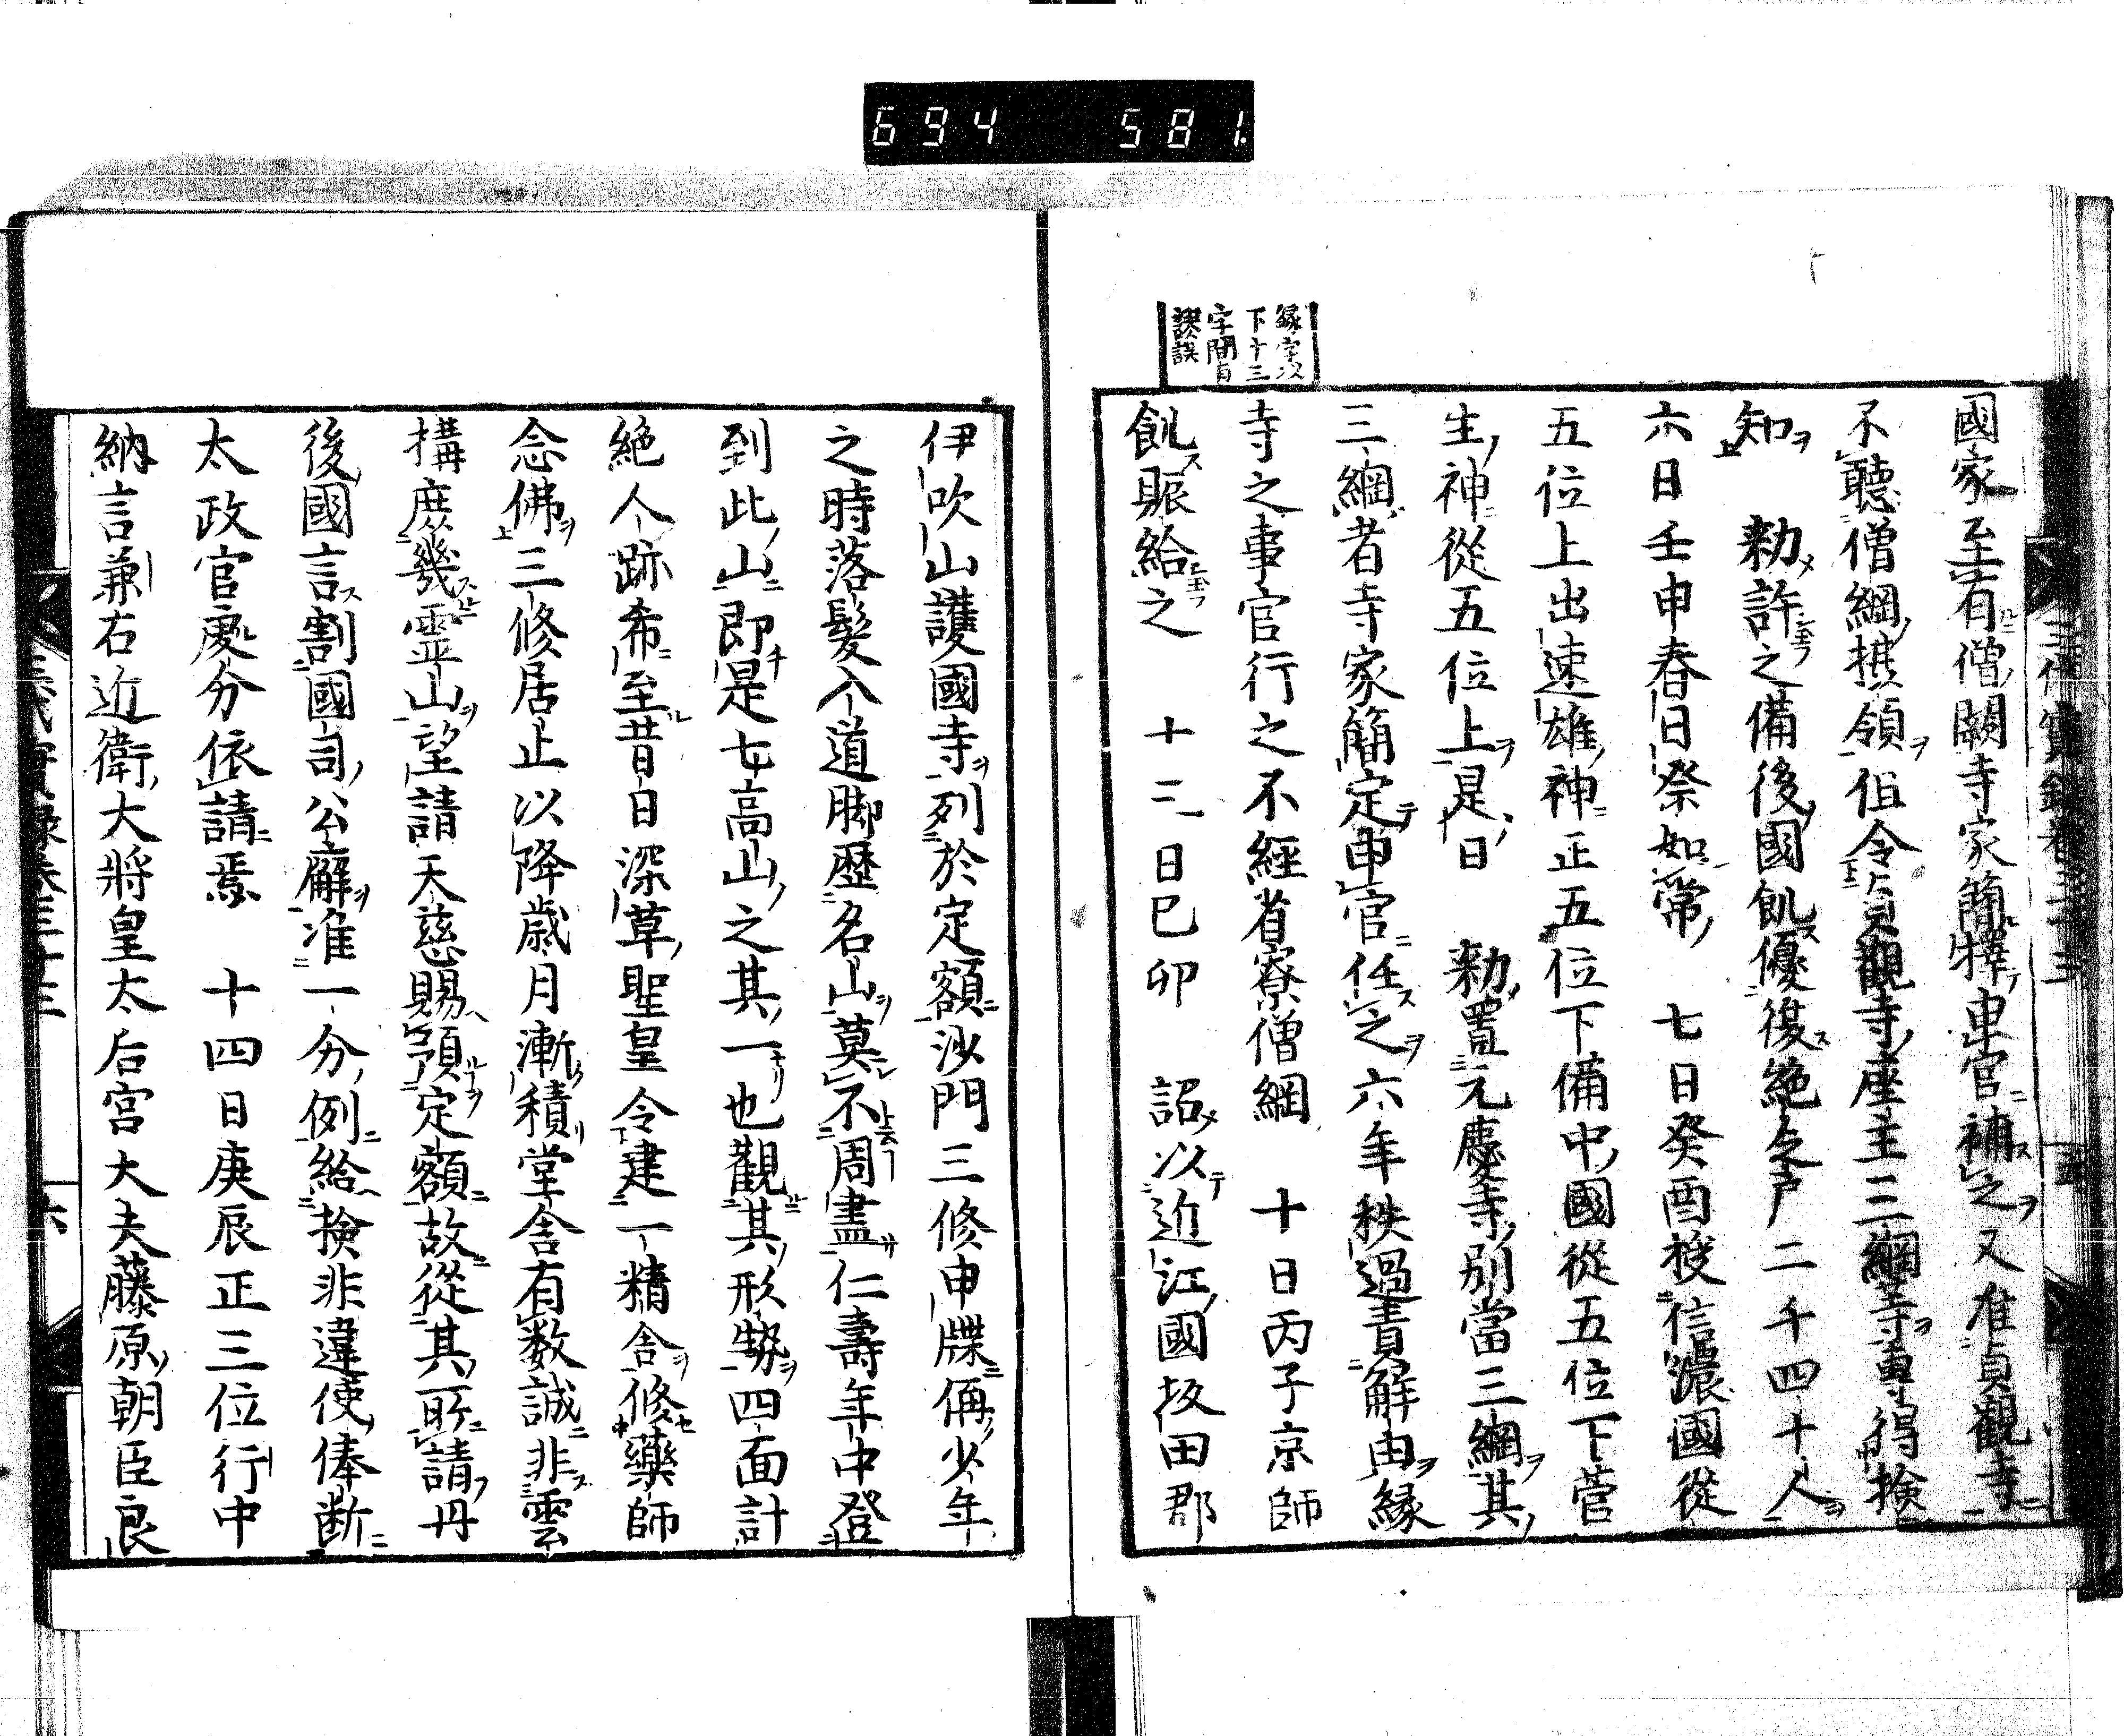 694 581.
縁字以
下十三
字間有
謬誤
國家至有僧闕寺家簡擇申官補之又准貞觀寺
不聽僧綱摂領但令貞觀寺座主三綱等專得検
知 勅許之備後國飢優復絶之戸二千四十人
六日壬申春日祭如常 七日癸酉授信濃國從
五位上出速雄神正五位下備中國從五位下菅
生神從五位上是日 勅置元慶寺別當三綱其
三綱者寺家簡定申官任之六年秩過責解由縁
寺之事官行之不經省寮僧綱 十日丙子京師
飢賑給之 十三日己卯 詔以近江國坂田郡
伊吹山護國寺列於定額沙門三修申牒偁少年
之時落髮入道脚歴名山莫不周盡仁壽年中登
到此山即是七高山之其一也觀其形勢四面計
絶人跡希至昔日深草聖皇令建一精舎修藥師
念佛三修居止以降歳月漸積堂舎有数誠非雲
構庶幾霊山望請天慈賜預定額故從其所請丹
後國言割國司公廨准一分例給検非違使俸断
太政官處分依請焉 十四日庚辰正三位行中
納言兼右近衛大將皇太后宮大夫藤原朝臣良
三代實録卷三十三
六